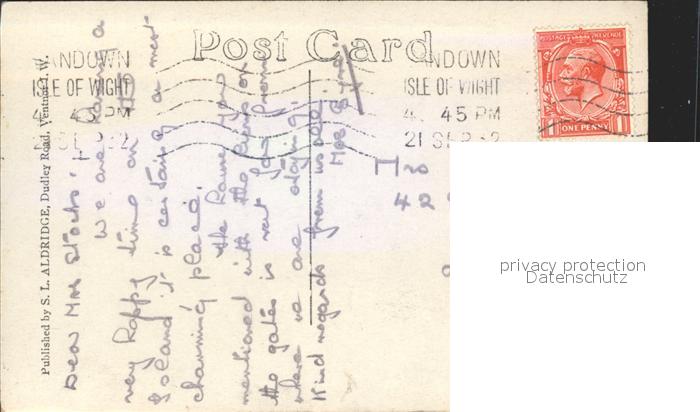 Post Card
SANDOWN
ISLE OF WIGHT
4 45 PM
21 SEP 32
SANDOWN
ISLE OF WIGHT
4 45 PM
21 SEP 32
POSTAGE REVENUE
1 ONE PENNY 1
Published by S. L. ALDRIDGE, Dudley Road, Ventnor, I. W.
Dear Mrs
We are having a
very happy time on the
Island it is certainly a most
charming place.
the lane you
mentioned with the on
the gates is very far from
where we are staying
Kind regards from us all
Mrs
Mrs
42
privacy protection
Datenschutz